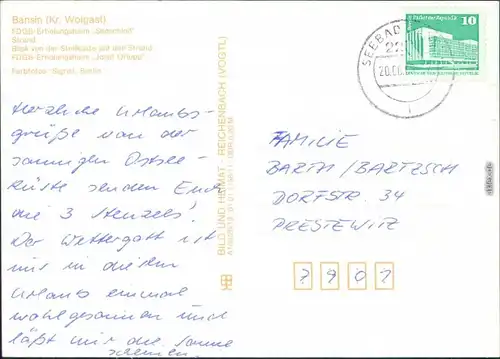 Bansin (Kr. Wolgast)
FDGB-Erholungsheim „Seeschloß“
Strand
Blick von der Steilküste auf den Strand
FDGB-Erholungsheim
Farbfotos: Berlin
SEEBAD
20.06.
10
Palast der Republik
DEUTSCHE DEMOKRATISCHE REPUBLIK
Herzliche Urlaubs-
grüße von der
sonnigen Ostsee-
küste senden Euch
die 3 Stenzels!
Der Wettergott ist
mir in diesem
Urlaub einmal
wohlgesonnen und
läßt mir die Sonne
scheinen.
BILD UND HEIMAT REICHENBACH (VOGTL)
FAMILIE
BARTH/BARTZSCH
DORFSTR. 34
PRESTEWITZ
7901